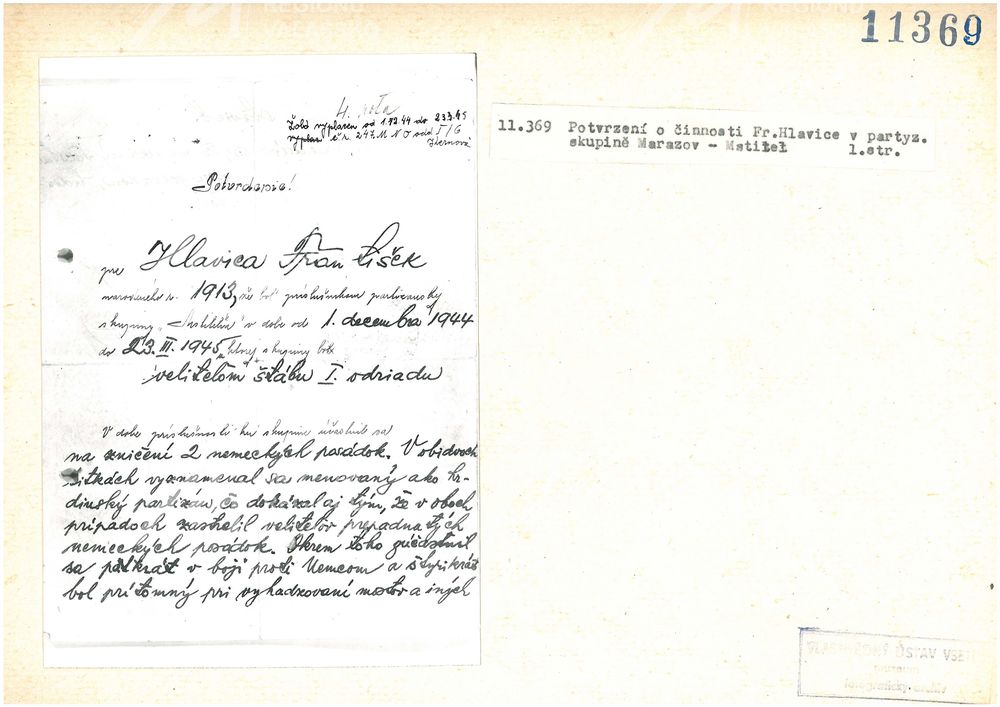 REGIONU
REGIONU
11369
4. rota
Žold vyplacen od 1.12.44 do 23.3.45
vyplac č.r. 247.M N O odd I/6
Potvrdenie!
pre Hlavica František
narodeného r. 1913, že bol príslušníkom partizanskej
skupiny „ " v dobe od 1. decembra 1944
do 23. III. 1945, ktorej skupiny bol
veliteľom štábu I. odriadu
V dobe príslušnosti ku skupine účastnil sa
na zničení 2 nemeckých posádok. V obidvoch
bitkách vyznamenal sa menovaný ako hr-
dinský partizán, čo dokázal aj tým, že v oboch
prípadoch zastrelil veliteľov prepadnutých
nemeckých posádok. Okrem toho zúčastnil
sa päťkrát v boji proti Nemcom a štyrikrát
bol prítomný pri vyhadzovaní mostov a iných
11.369 Potvrzení o činnosti Fr.Hlavice v partyz.
skupině Marazov - Mstitel 1.str.
VLASTIVĚDNÝ ÚSTAV VSET
muzeum
fotografický archiv